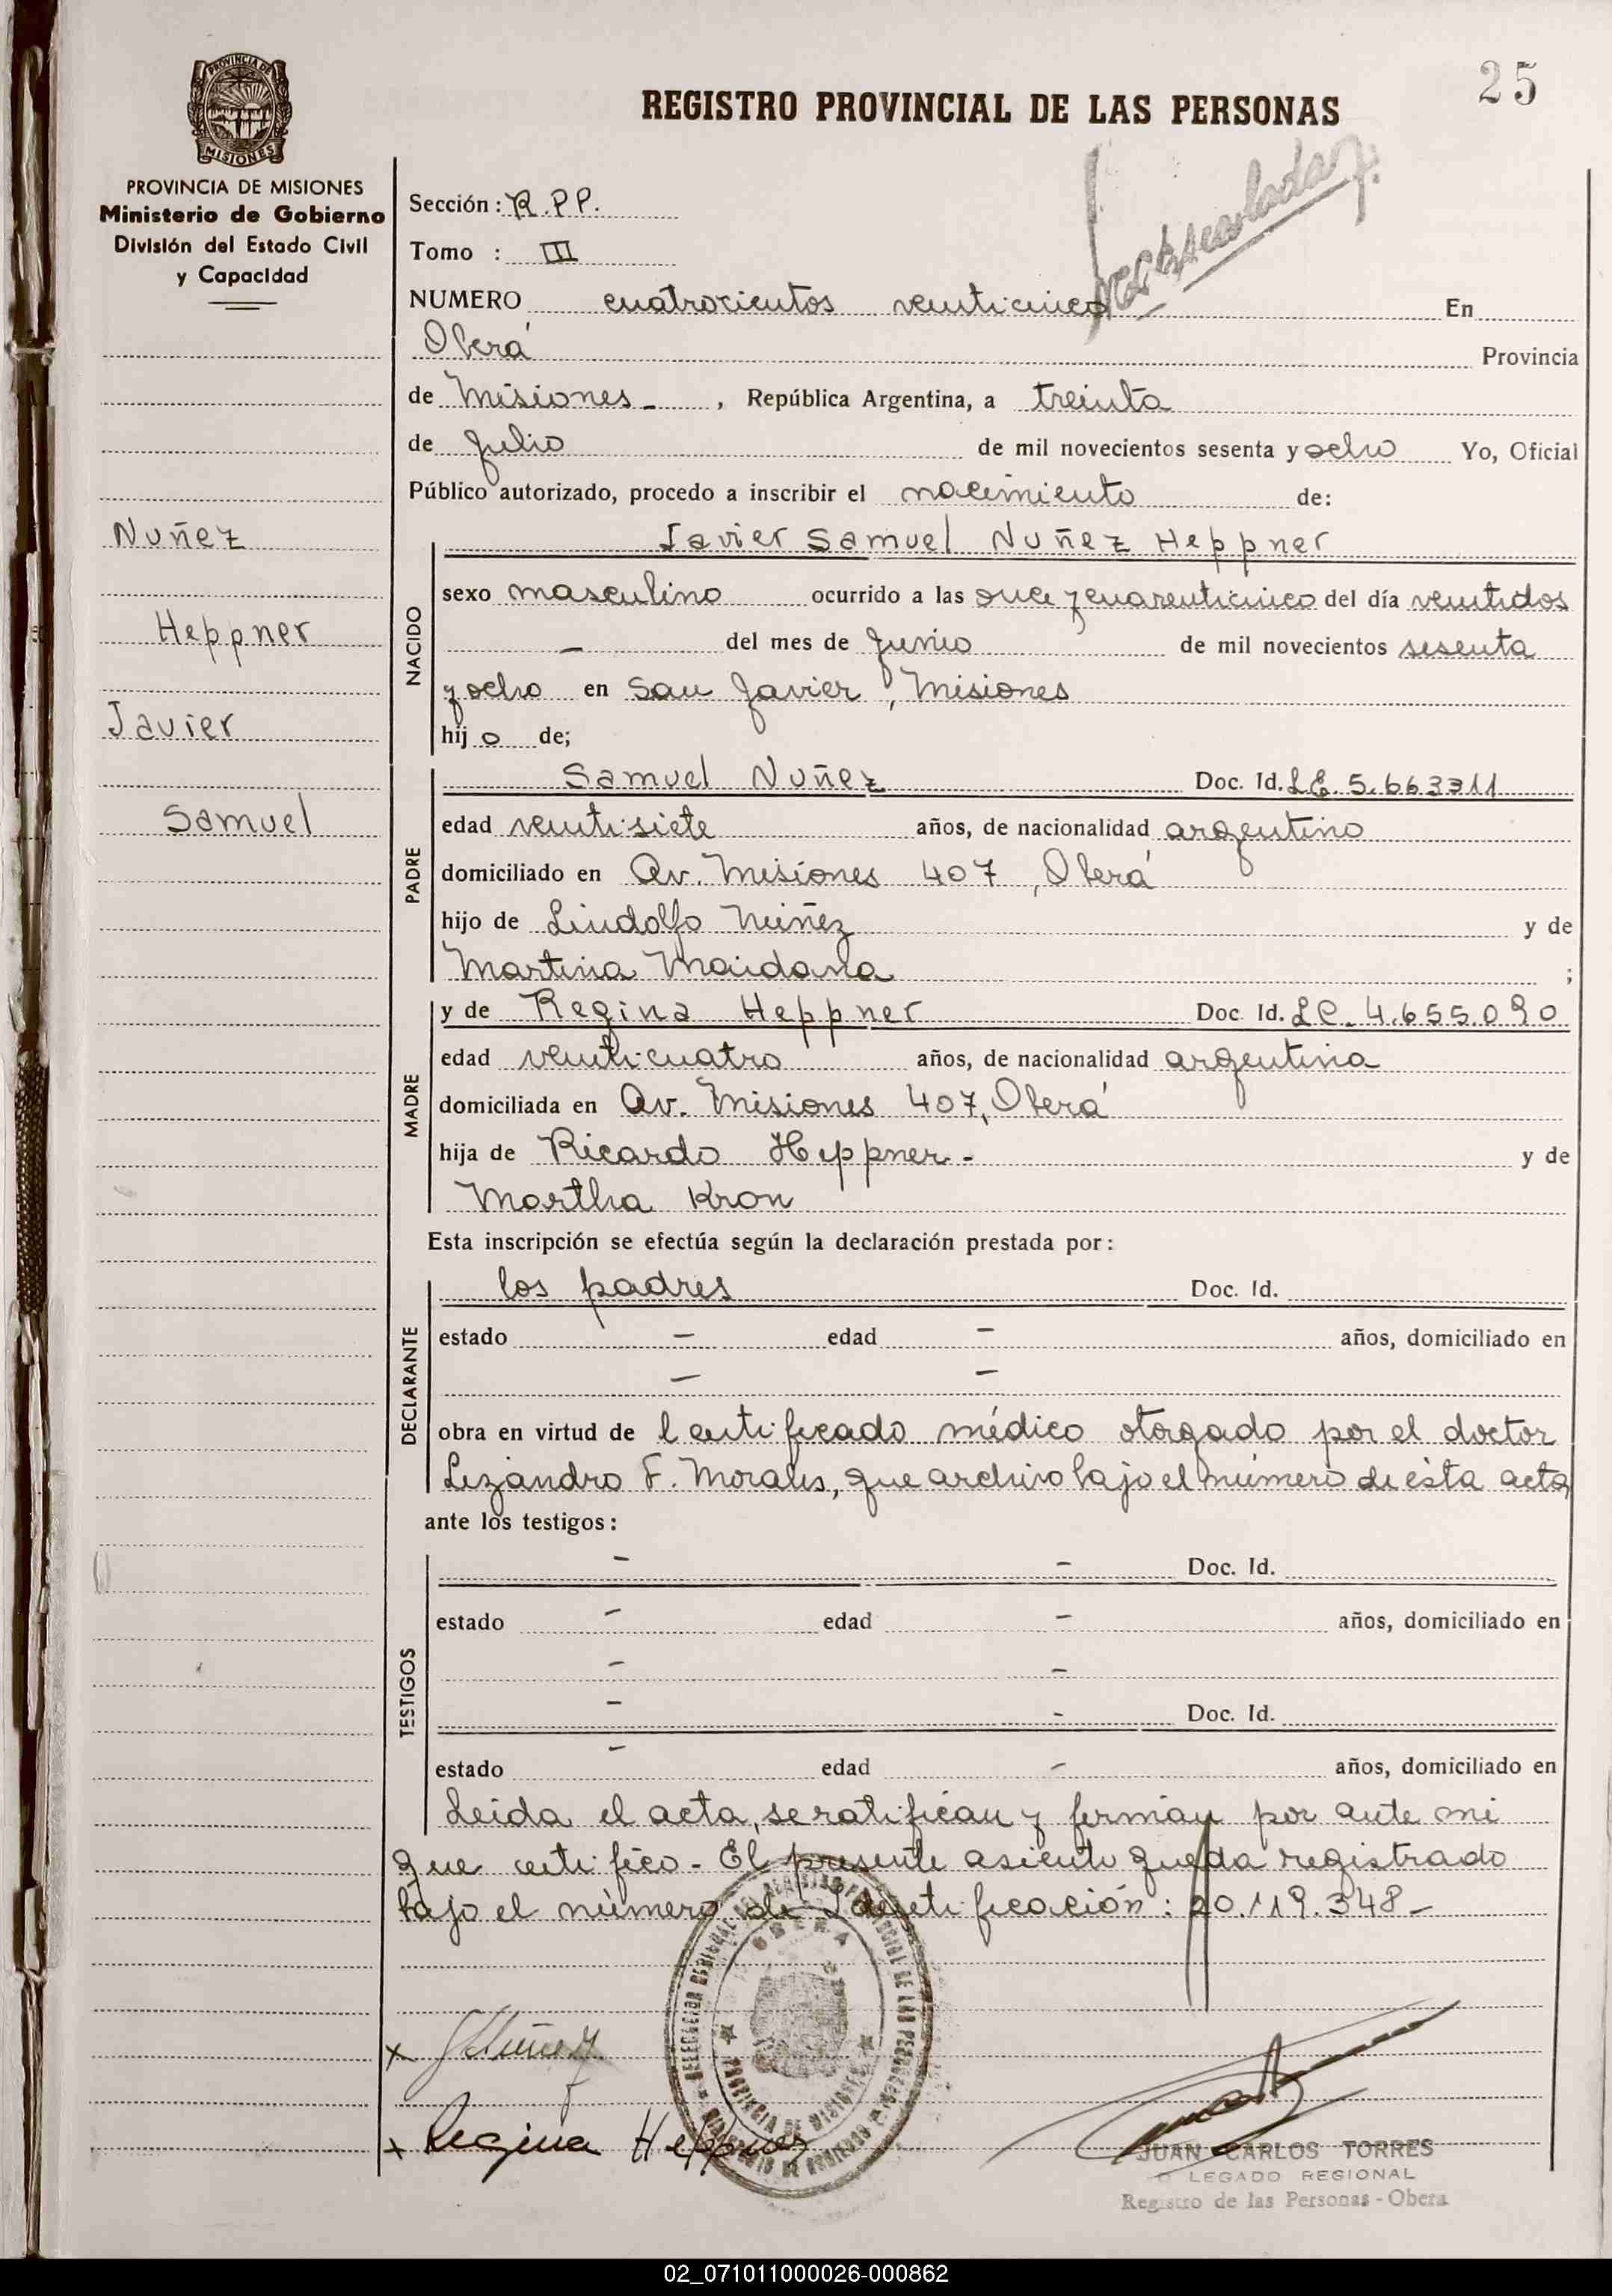 25
REGISTRO PROVINCIAL DE LAS PERSONAS
PROVINCIA DE
MISIONES
PROVINCIA DE MISIONES
Ministerio de Gobierno
División del Estado Civil
y Capacidad
Sección: R.P.P.
Tomo : III
NUMERO cuatrocientos veinticinco En
Oberá Provincia
de Misiones - , República Argentina, a treinta
de Julio de mil novecientos sesenta y ocho Yo, Oficial
Público autorizado, procedo a inscribir el nacimiento de:
Nuñez
Heppner
Javier
Samuel
NACIDO
Javier Samuel Nuñez Heppner
sexo masculino ocurrido a las once y cuarenticinco del día veintidos
- del mes de Junio de mil novecientos sesenta
y ocho en San Javier, Misiones
hijo de;
PADRE
Samuel Nuñez Doc. Id. L.E. 5.663311
edad veintisiete años, de nacionalidad argentino
domiciliado en Av. Misiones 407, Oberá
hijo de Lindolfo Núñez y de
Martina Maidana ;
MADRE
y de Regina Heppner Doc. Id. L.C. 4.655.090
edad veinticuatro años, de nacionalidad argentina
domiciliada en Av. Misiones 407, Oberá
hija de Ricardo Heppner - y de
Martha Kron
Esta inscripción se efectúa según la declaración prestada por:
DECLARANTE
los padres Doc. Id.
estado - edad - años, domiciliado en
- -
obra en virtud de certificado médico otorgado por el doctor
Lizandro F. Morales, que archivo bajo el número de ésta acta
ante los testigos:
TESTIGOS
- - Doc. Id.
estado - edad - años, domiciliado en
- -
- - Doc. Id.
estado - edad - años, domiciliado en
Leida el acta, se ratifican y firman por ante mi
que certifico - El presente asiento queda registrado
bajo el número de Identificación: 20.119.348 -
x SNúñez
x Regina Heppner
OBERA
PROVINCIA DE MISIONES
JUAN CARLOS TORRES
D LEGADO REGIONAL
Registro de las Personas - Obera
02_071011000026-000862